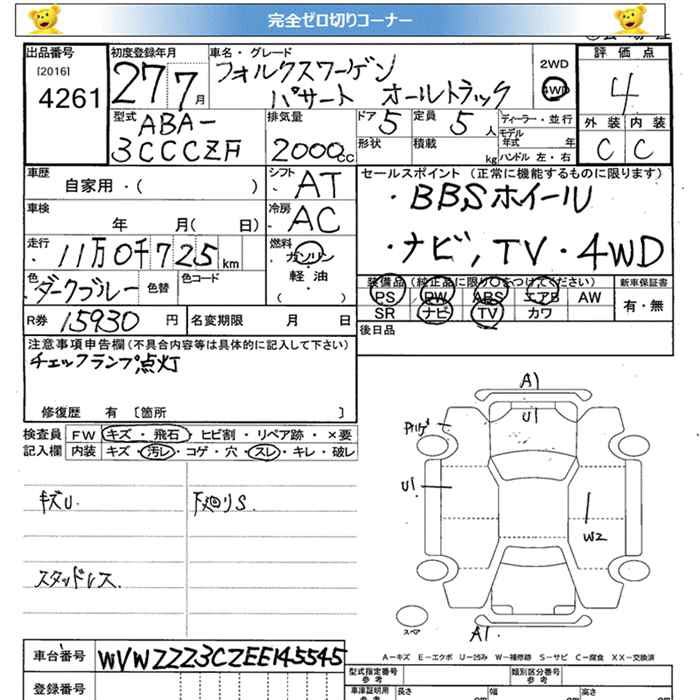 完全ゼロ切りコーナー
出品番号
[2016]
4261
初度登録年月
27 7月
車名・グレード
フォルクスワーゲン
パサート オールトラック
2WD
4WD
評価点
4
外装 内装
C C
型式
ABA-
3CCCZF
排気量
2000cc
ドア 5
定員 5人
形状
積載 kg
ディーラー・並行
モデル年式 年
ハンドル 左・右
車歴
自家用・( )
シフト AT
セールスポイント (正常に機能するものに限ります)
・BBSホイール
・ナビ, TV・4WD
車検
年 月( 日)
冷房 AC
走行
11万0千725km
燃料
ガソリン
・
軽油
( )
色
ダークブルー
色替
色コード
装備品 (純正品に限り○をつけてください)
PS PW ABS エアB AW
SR ナビ TV カワ
新車保証書
有・無
R券 15930 円
名変期限 月 日
後日品
注意事項申告欄(不具合内容等は具体的に記入して下さい)
チェックランプ点灯
修復歴 有 〔箇所 〕
検査員
記入欄
FW キズ・飛石・ヒビ割・リペア跡・×要
内装 キズ・汚レ・コゲ・穴・スレ・キレ・破レ
キズU.
下廻りS.
スタッドレス.
A1
U1
U1
W2
A1.
スペア
A-キズ E-エクボ U-凹み W-補修跡 S-サビ C-腐食 XX-交換済
車台番号 WVWZZZ3CZEE145545
登録番号
型式指定番号
参考
類別区分番号
参考
車庫証明用
参考
長さ cm
幅 cm
高さ cm